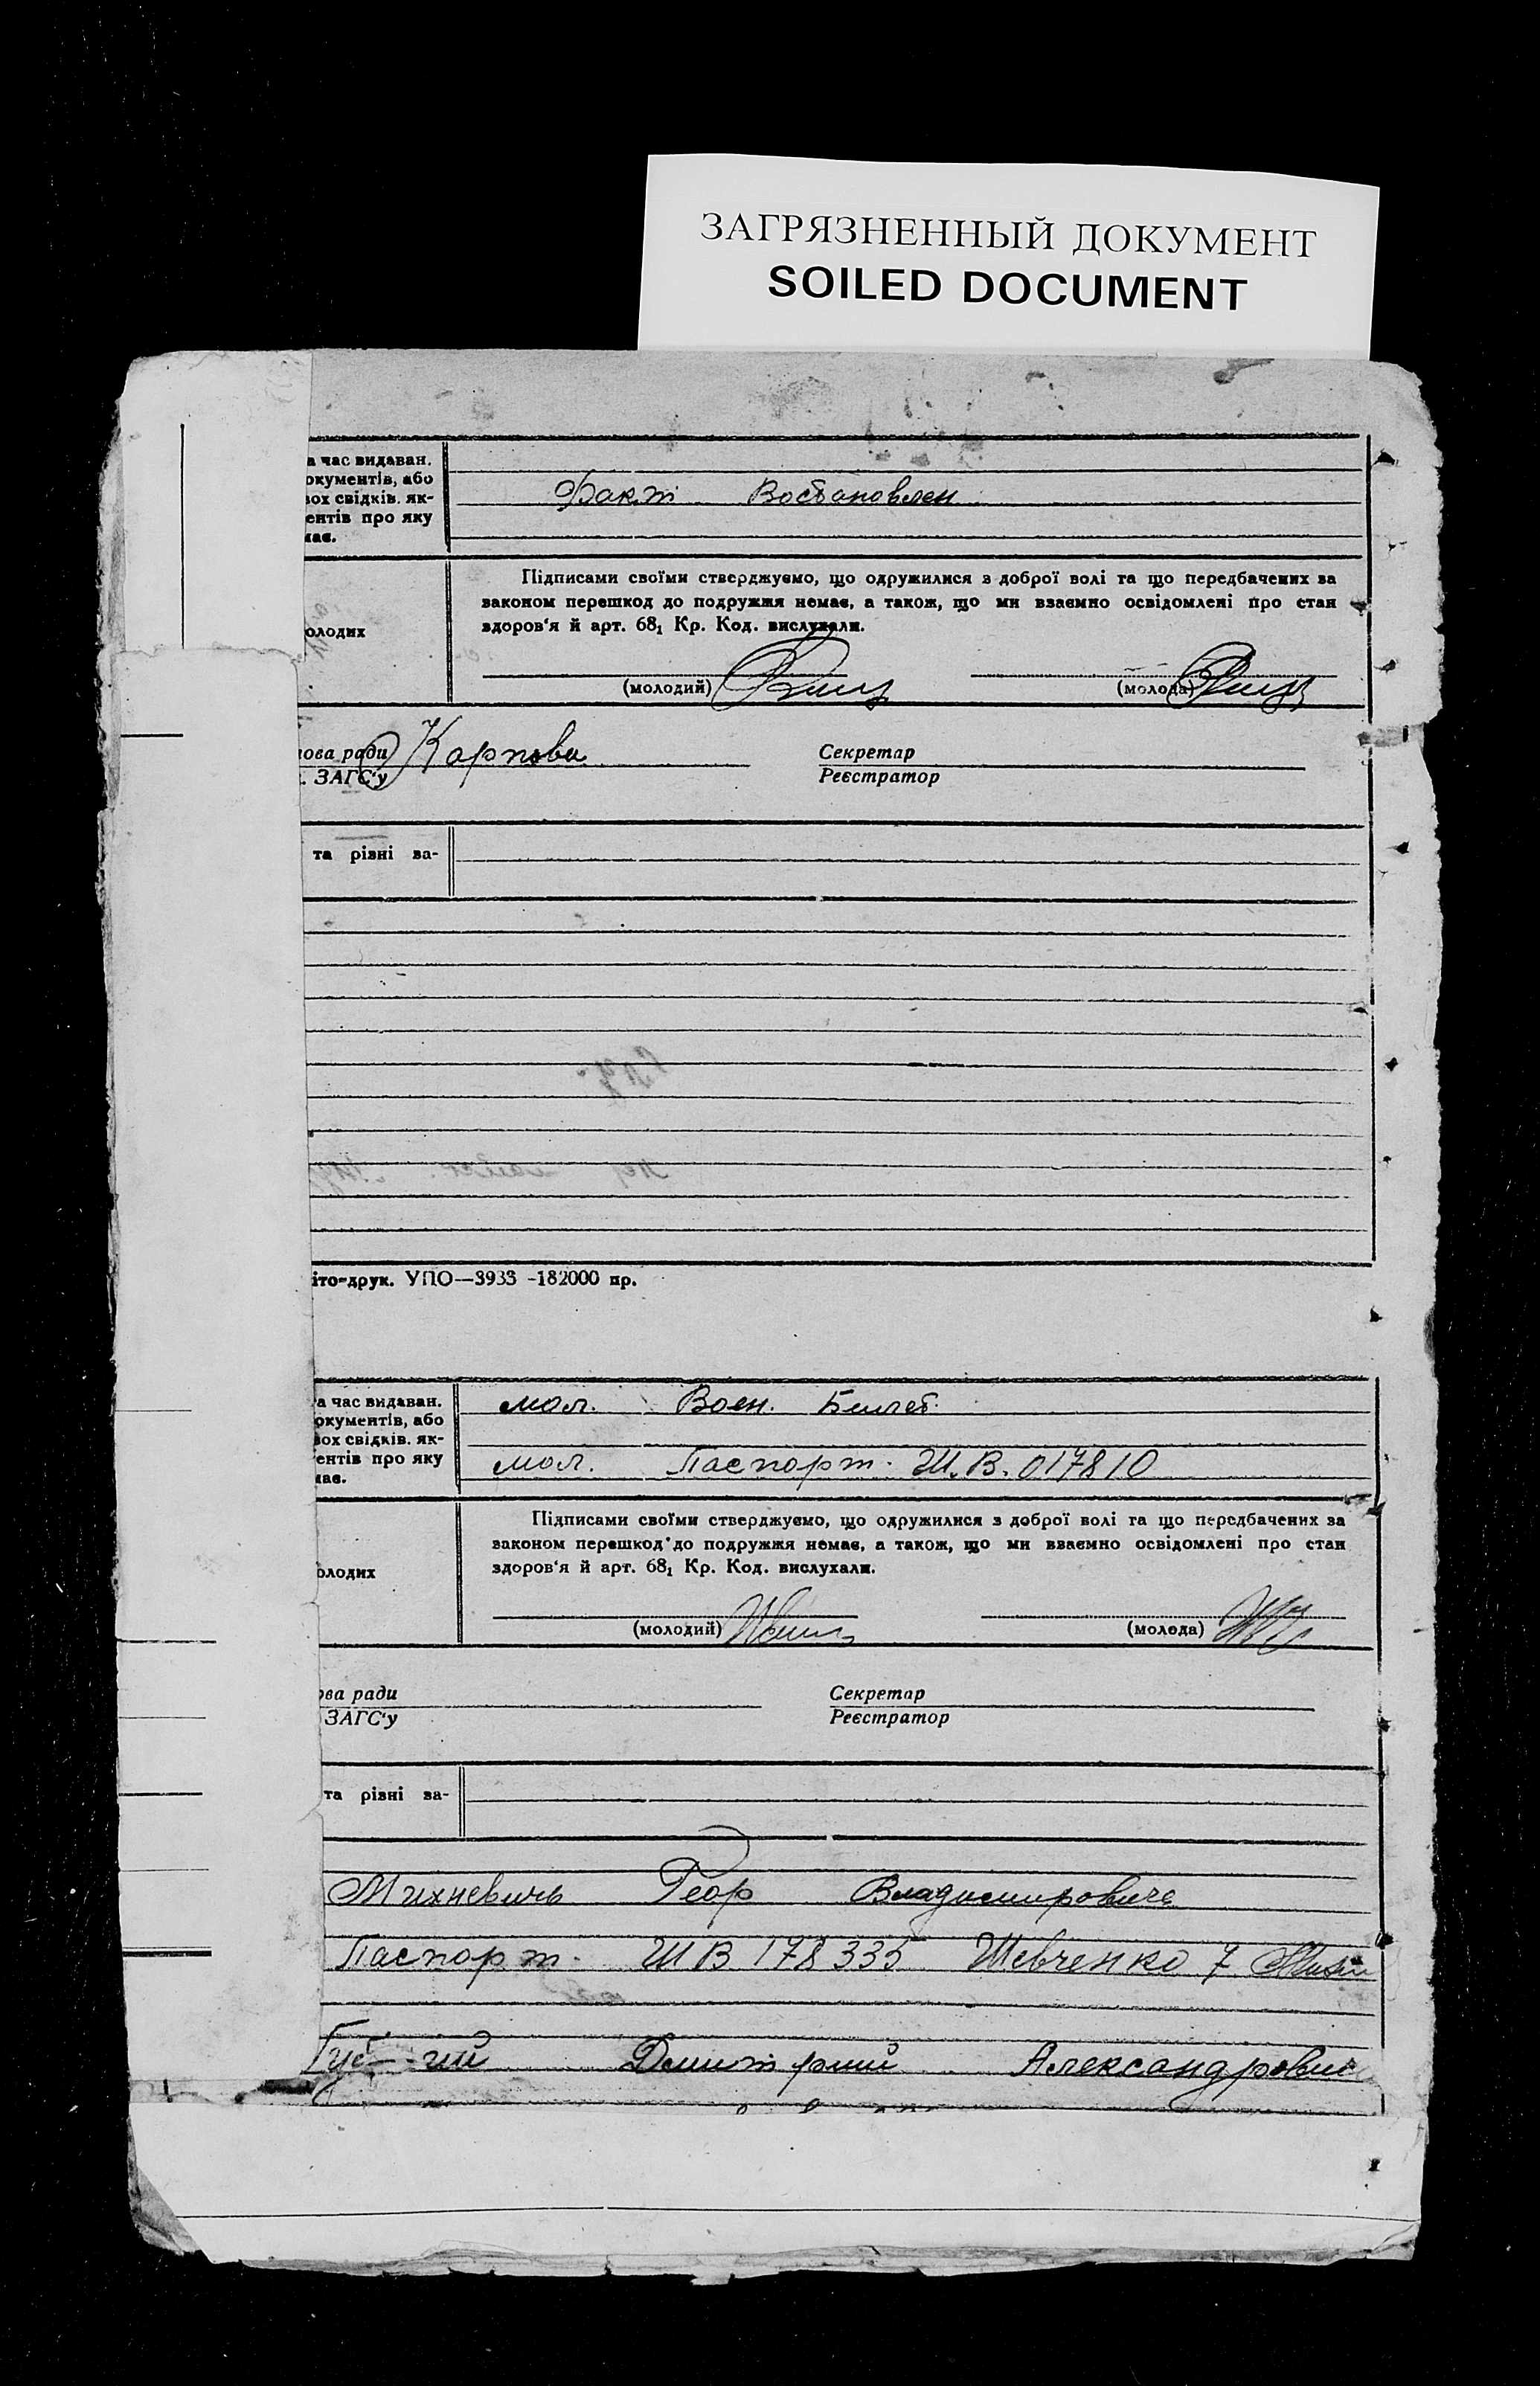 ЗАГРЯЗНЕННЫЙ ДОКУМЕНТ
SOILED DOCUMENT
а час видаван.
окументів, або
вох свідків. як-
ентів про яку
має.
Факт Востановлен
Підписами своїми стверджуємо, що одружилися з доброї волі та що передбачених за
законом перешкод до подружжя немає, а також, що ми взаємно освідомлені про стан
здоров'я й арт. 68₁ Кр. Код. вислухали.
олодих
(молодий) (молода)
ова ради Карпова Секретар
. ЗАГС'у Реєстратор
та різні за-
іто-друк. УПО—3933 -182000 пр.
а час видаван.
окументів, або
вох свідків. як-
ентів про яку
має.
мол. Воен. Билет.
мол. Паспорт. Ш.В. 017810
Підписами своїми стверджуємо, що одружилися з доброї волі та що передбачених за
законом перешкод до подружжя немає, а також, що ми взаємно освідомлені про стан
здоров'я й арт. 68₁ Кр. Код. вислухали.
олодих
(молодий) (молода)
ова ради Секретар
ЗАГС'у Реєстратор
та різні за-
Михневичь Геор Владимировиче
Паспорт. ШВ 178335 Шевченко 7
Дмитрий Александрович